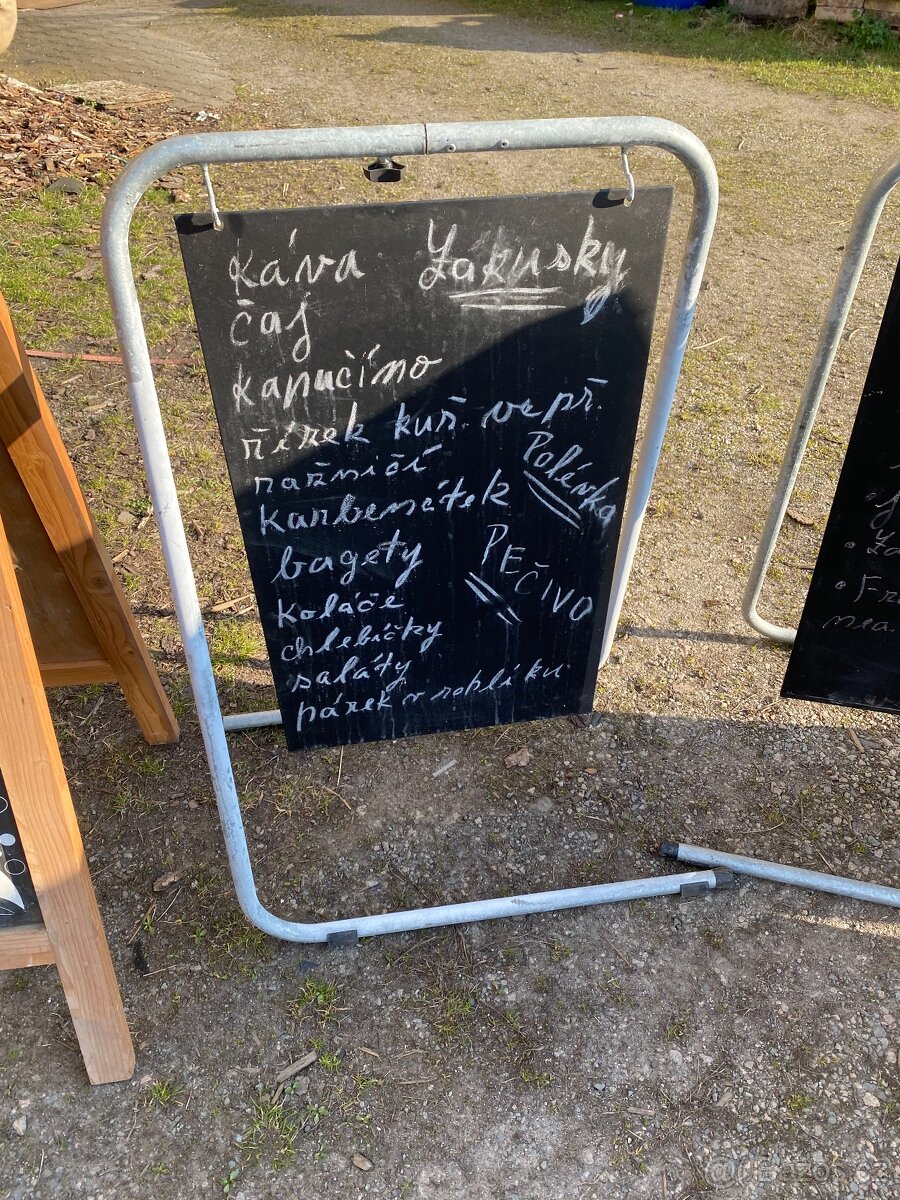 káva Zákusky
čaj
kapučíno
řízek kuř. vepř.
ražničí
Polévka
karbenátek
bagety
PEČIVO
koláče
chlebíčky
saláty
párek v rohlíku
Bazoš.cz